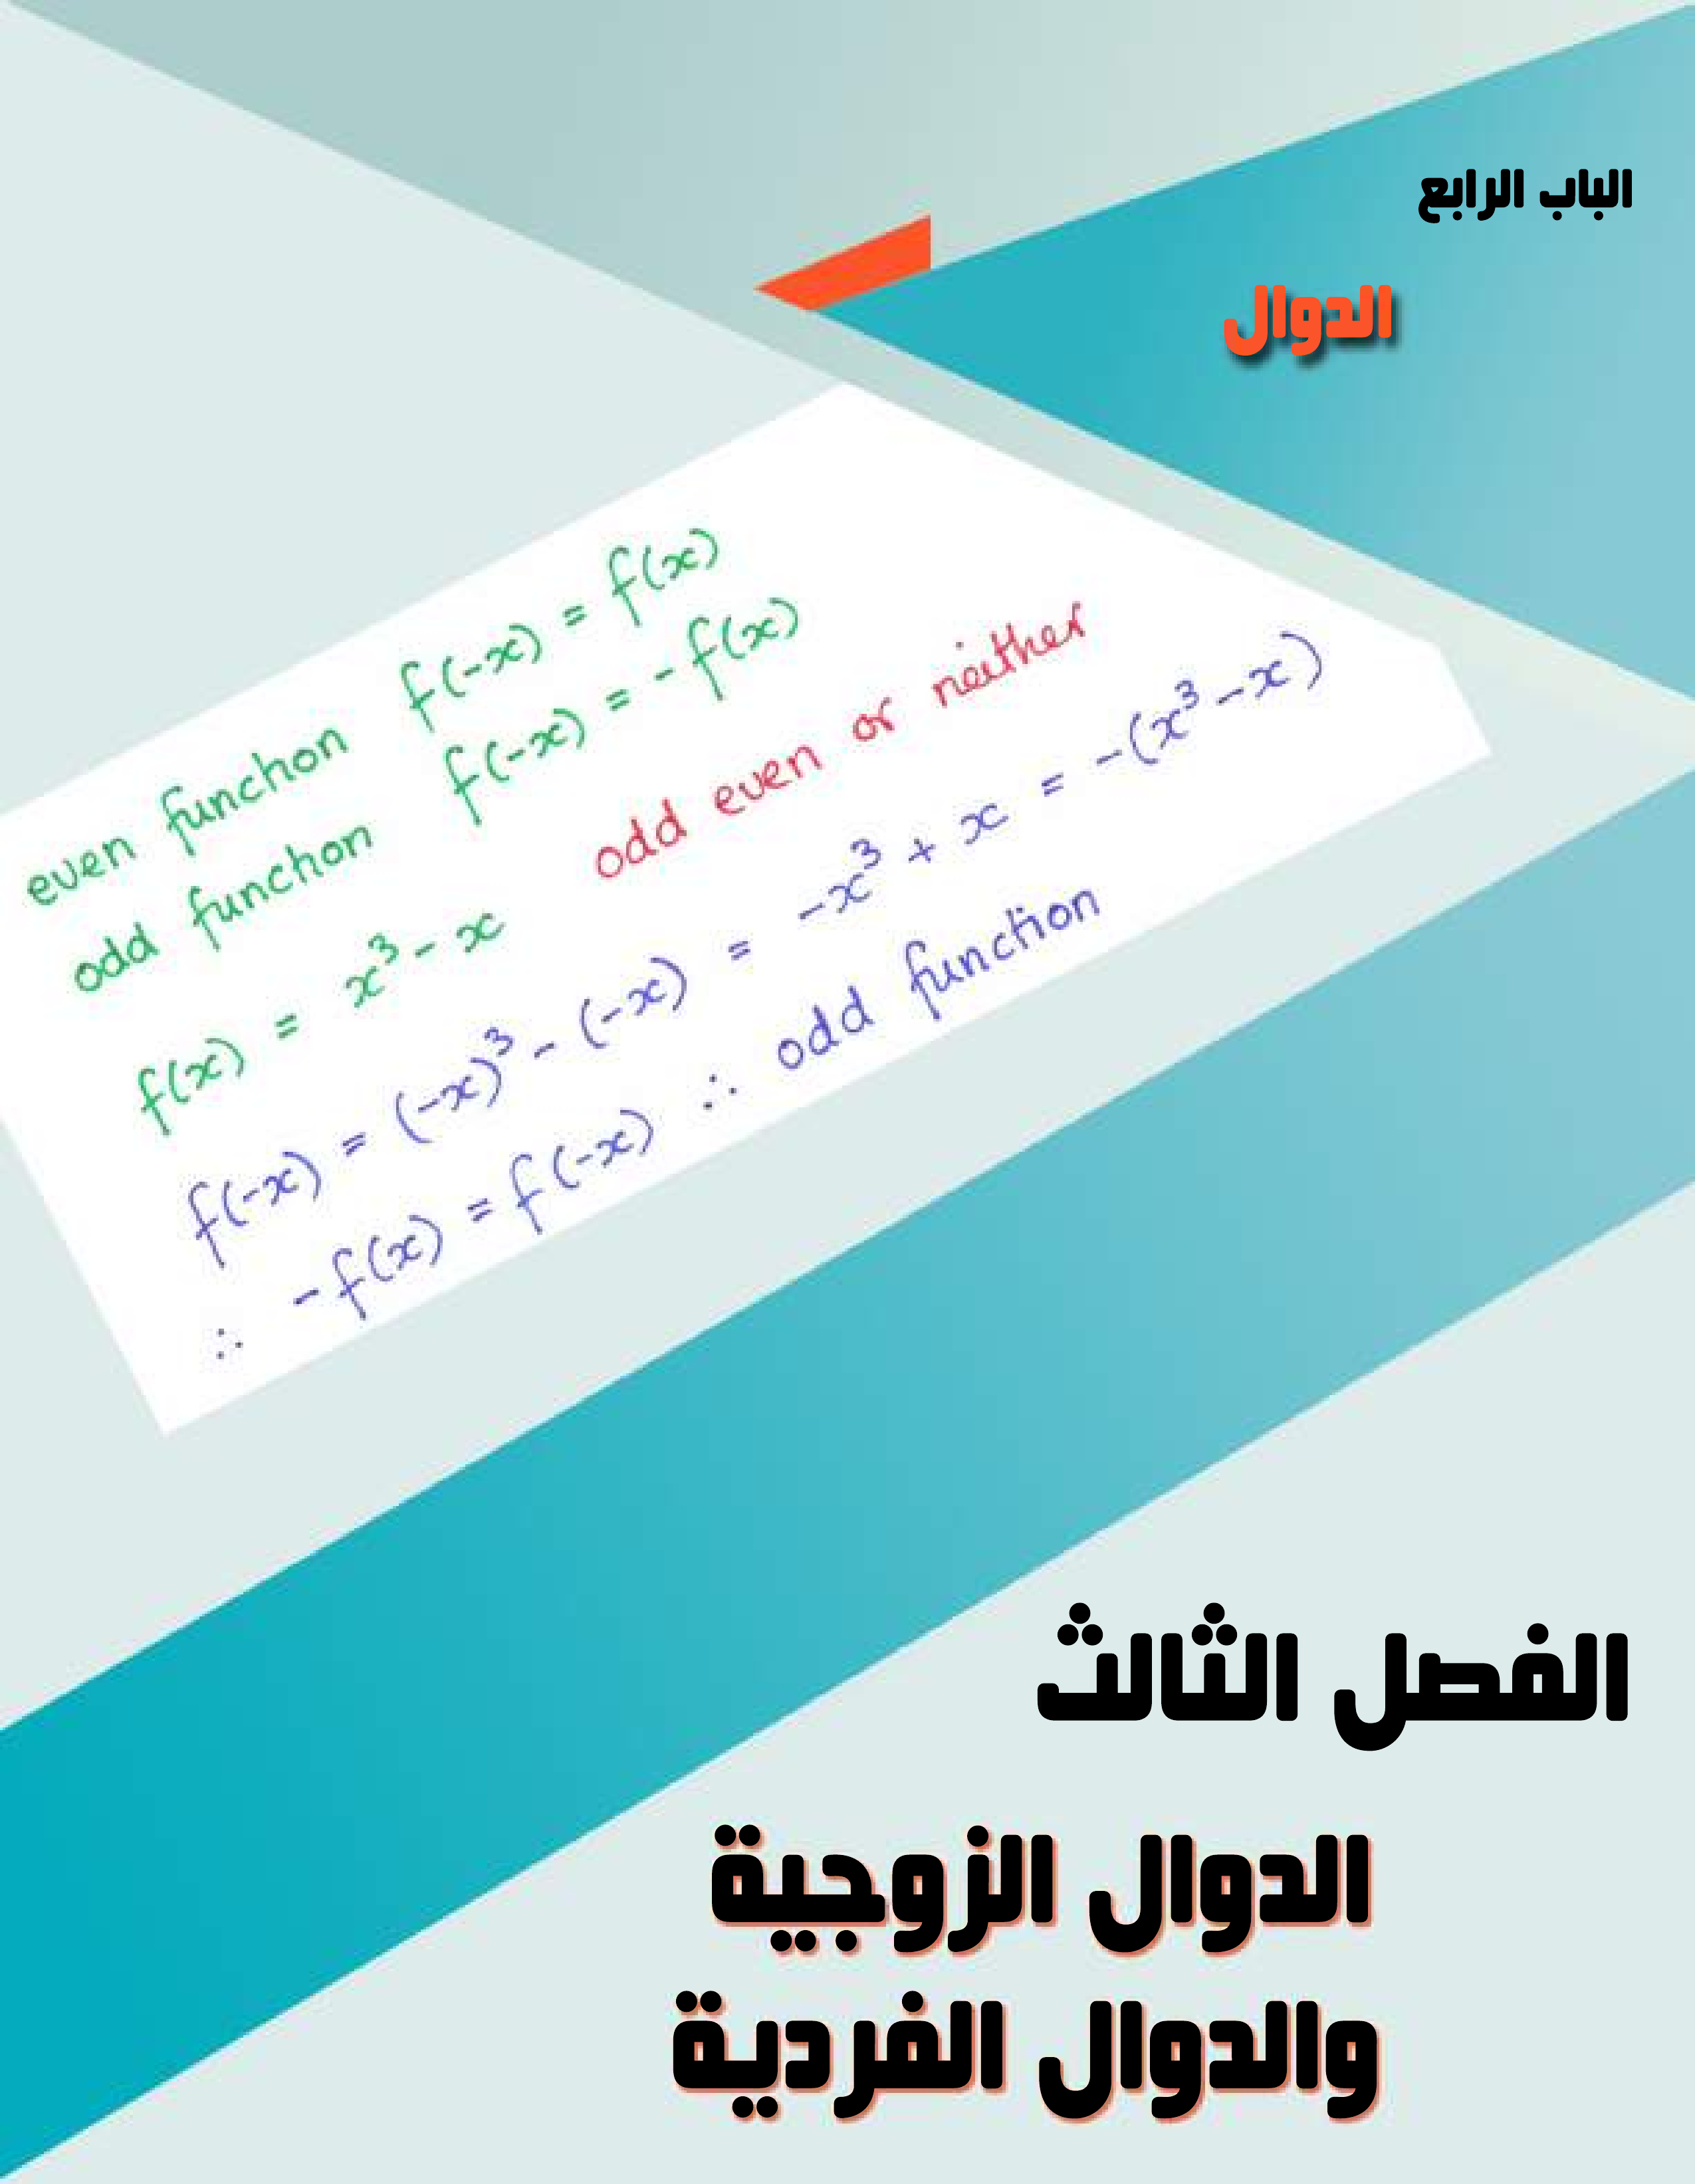 الباب الرابع
الدوال
even function f(-x) = f(x)
odd function f(-x) = -f(x)
f(x) = x³ - x odd even or neither
f(-x) = (-x)³ - (-x) = -x³ + x = -(x³ - x)
∴ -f(x) = f(-x) ∴ odd function
الفصل الثالث
الدوال الزوجية
والدوال الفردية